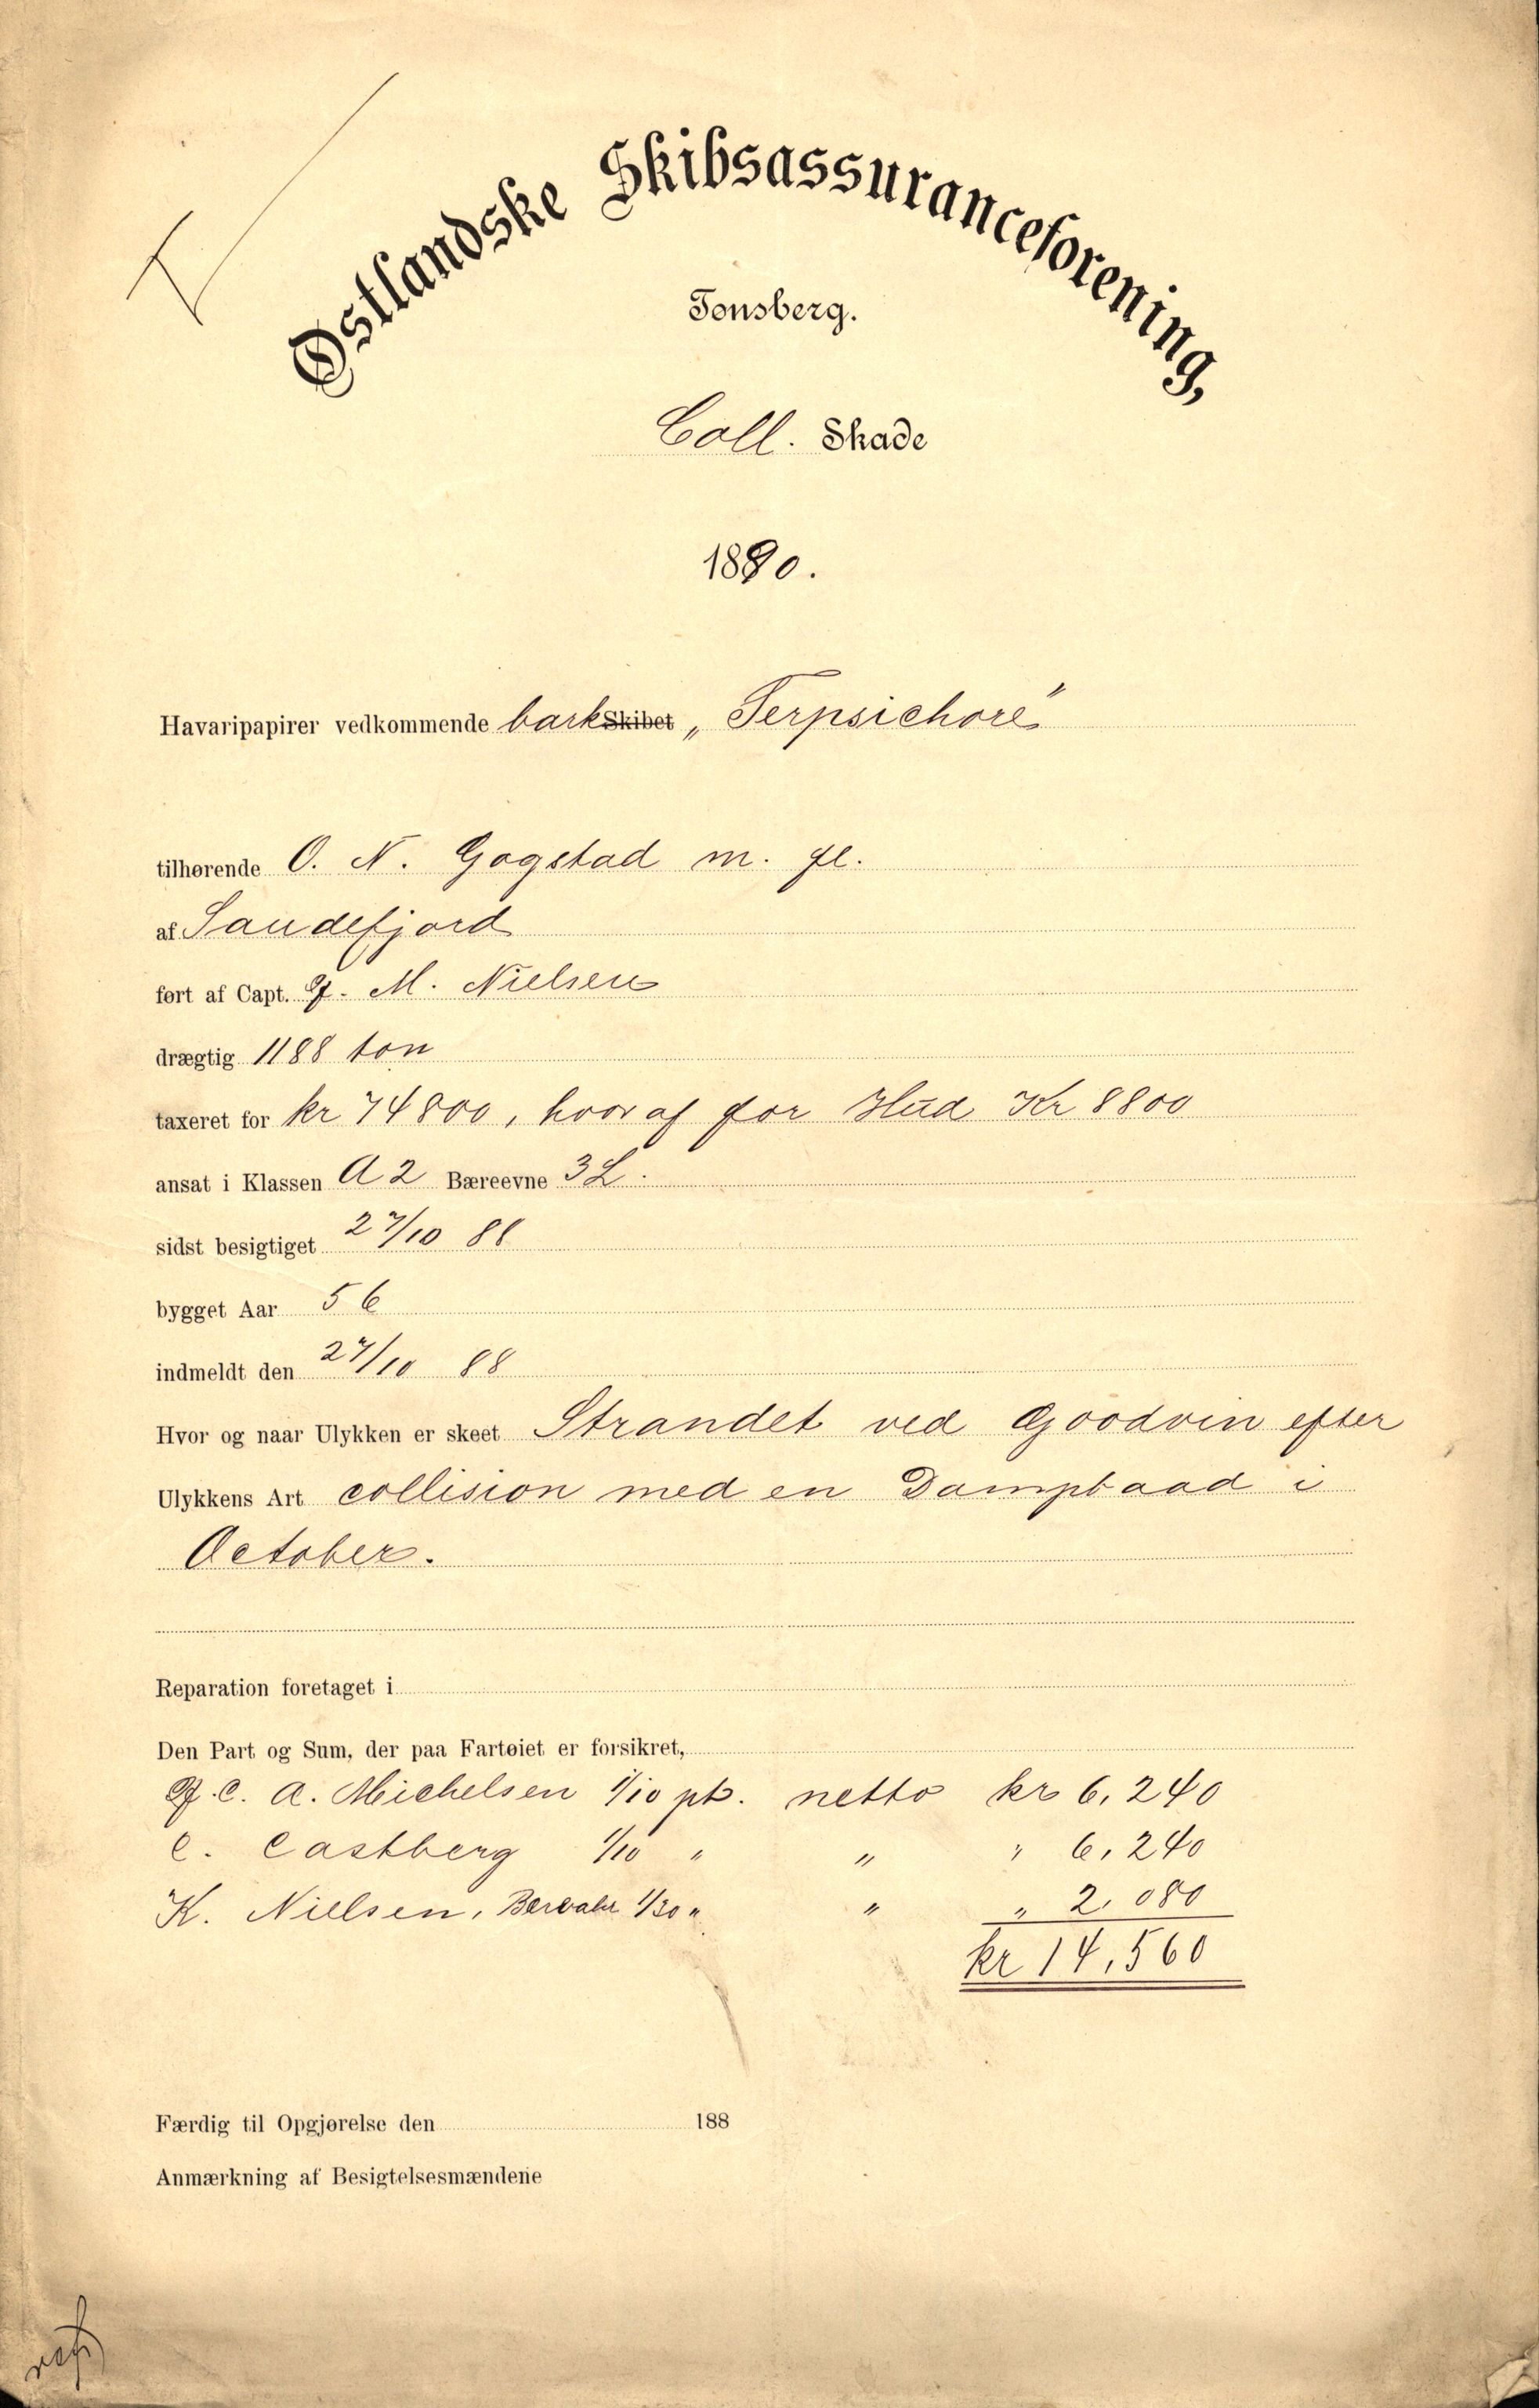 Østlandske Skibsassuranceforening,
Tønsberg.
Coll. Skade
1890.
Havaripapirer vedkommende bark Skibet „Terpsichore"
tilhørende O. N. Gogstad m. fl.
af Sandefjord
ført af Capt. J. M. Nielsen
drægtig 1188 ton
taxeret for kr 74800, hvoraf for Hud Kr 8800
ansat i Klassen A2 Bæreevne 3L.
sidst besigtiget 27/10 88
bygget Aar 56
indmeldt den 27/10 88
Hvor og naar Ulykken er skeet Strandet ved Goodvin efter
Ulykkens Art collision med en Dampbaad i
October.
Reparation foretaget i
Den Part og Sum, der paa Fartøiet er forsikret,
J. C. A. Michelsen 1/10 pt. netto kr 6,240
C. Castberg 1/10 " " " 6,240
K. Nielsen, 1/30 " " " 2,080
kr 14,560
Færdig til Opgjørelse den 188
Anmærkning af Besigtelsesmændene